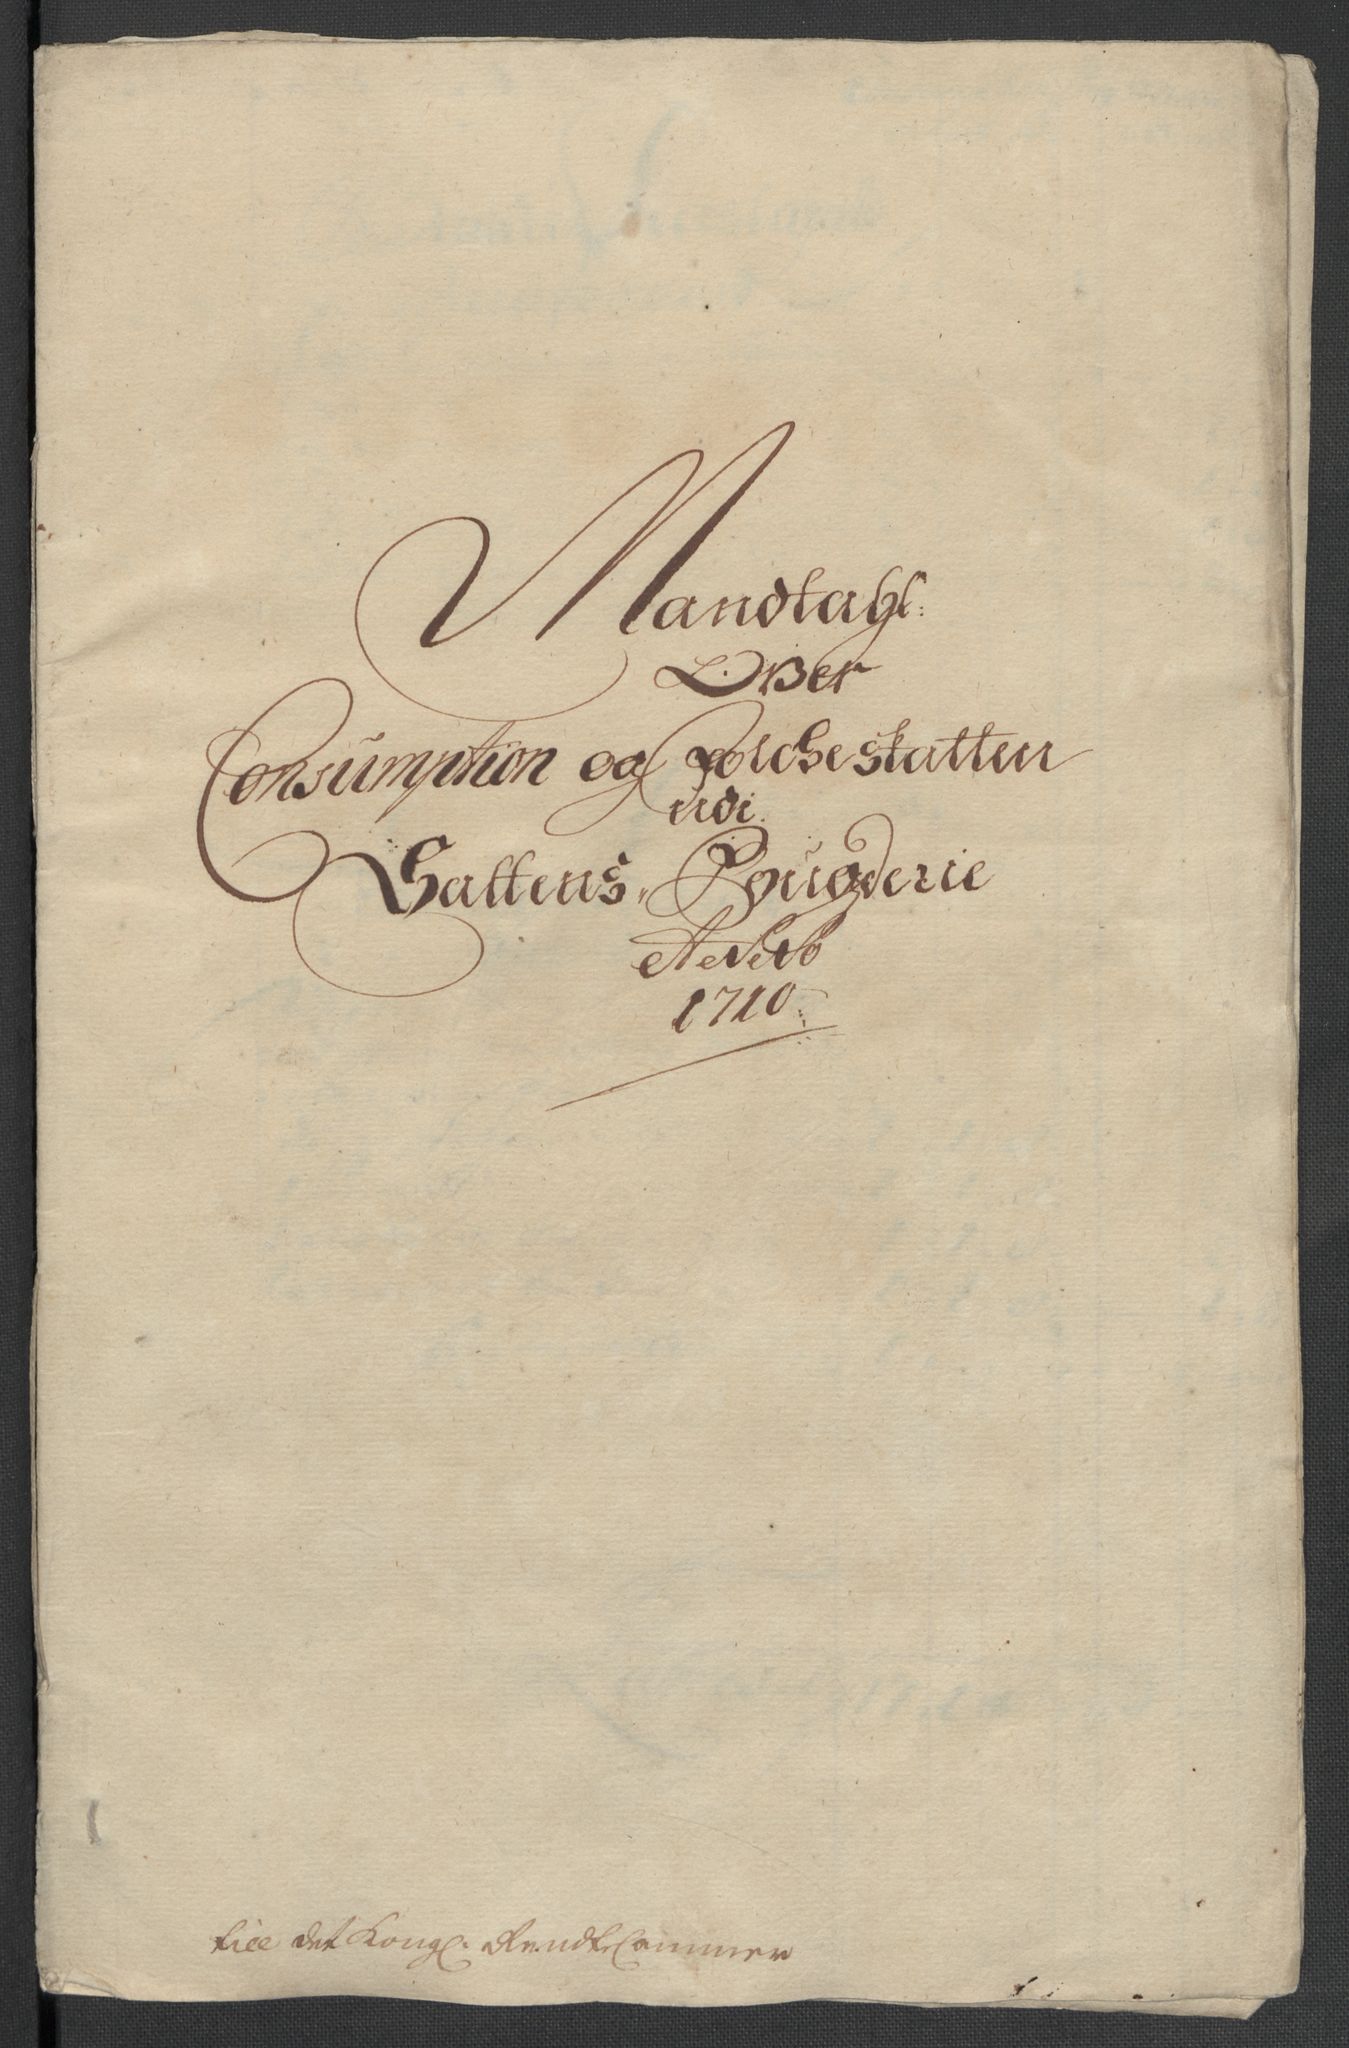 Mandtahl:
Over
Consumption og Folcheskatten
udi.
Saltens Fougderie
Anno
1710
till det Kongl. Rendte Cammer